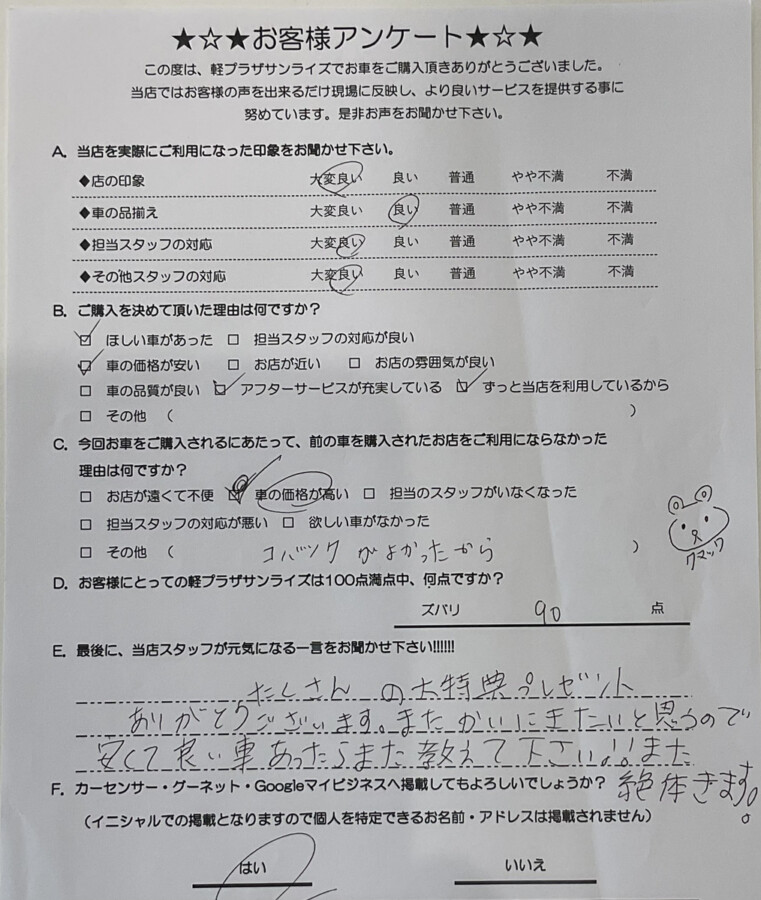 ★☆★お客様アンケート★☆★
この度は、軽プラザサンライズでお車をご購入頂きありがとうございました。
当店ではお客様の声を出来るだけ現場に反映し、より良いサービスを提供する事に
努めています。是非お声をお聞かせ下さい。
A. 当店を実際にご利用になった印象をお聞かせ下さい。
◆店の印象 大変良い 良い 普通 やや不満 不満
◆車の品揃え 大変良い 良い 普通 やや不満 不満
◆担当スタッフの対応 大変良い 良い 普通 やや不満 不満
◆その他スタッフの対応 大変良い 良い 普通 やや不満 不満
B. ご購入を決めて頂いた理由は何ですか？
☑ ほしい車があった □ 担当スタッフの対応が良い
☑ 車の価格が安い □ お店が近い □ お店の雰囲気が良い
□ 車の品質が良い ☑ アフターサービスが充実している ☑ ずっと当店を利用しているから
□ その他 （ ）
C. 今回お車をご購入されるにあたって、前の車を購入されたお店をご利用にならなかった
理由は何ですか？
□ お店が遠くて不便 ☑ 車の価格が高い □ 担当のスタッフがいなくなった
□ 担当スタッフの対応が悪い □ 欲しい車がなかった
□ その他 （ コバックがよかったから ）
クマック
D. お客様にとっての軽プラザサンライズは100点満点中、何点ですか？
ズバリ 90 点
E. 最後に、当店スタッフが元気になる一言をお聞かせ下さい!!!!!!
たくさんの大特典プレゼント
ありがとうございます。またかいにきたいと思うので
安くて良い車あったらまた教えて下さい!!また
絶体きます。
F. カーセンサー・グーネット・Googleマイビジネスへ掲載してもよろしいでしょうか？
（イニシャルでの掲載となりますので個人を特定できるお名前・アドレスは掲載されません）
はい いいえ